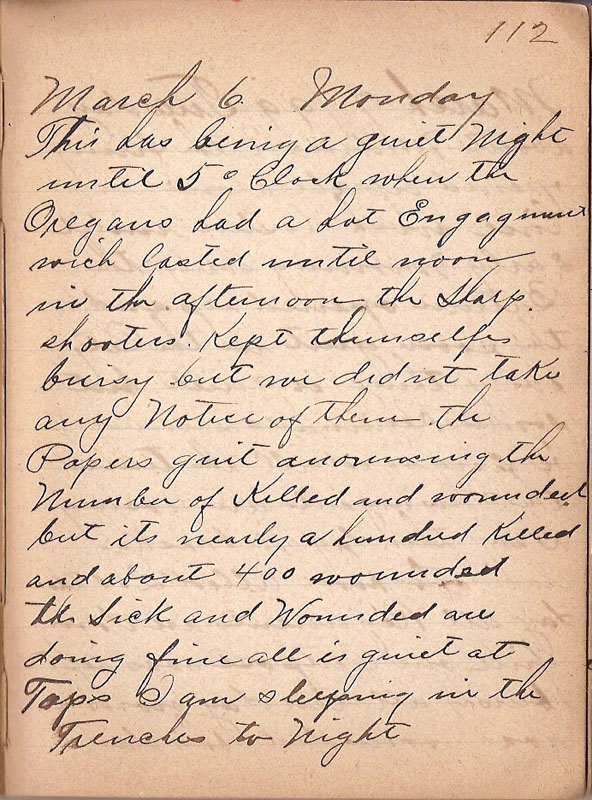 112
March 6. Monday
This has being a quiet Night
until 5 o Clock when the
Oregans had a hot Engagment
wich lasted until noon
in the afternoon the Sharp
shooters. Kept themselfes
buisy but we didnt take
any Notice of them the
Papers quit anouncing the
Number of Killed and wounded
but its nearly a hundred Killed
and about 400 wounded
the Sick and Wounded are
doing fine all is quiet at
Taps I am sleeping in the
Trenches to Night